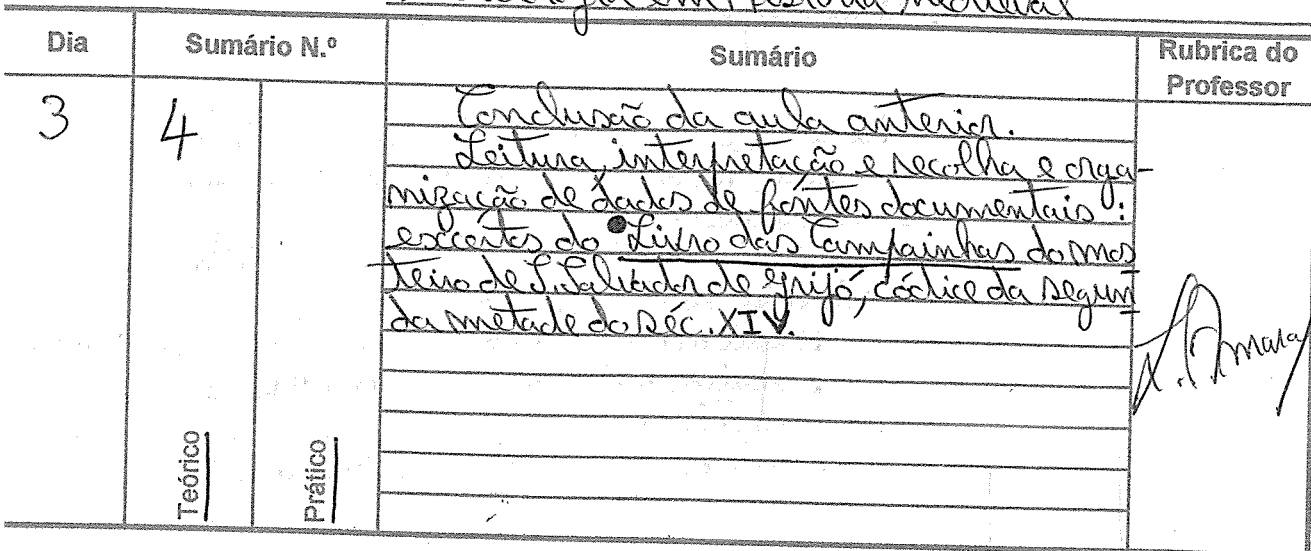 em História Medieval
Dia
Sumário N.º
Sumário
Rubrica do
Professor
3
4
Conclusão da aula anterior.
Leitura, interpretação e recolha e orga-
nização de dados de fontes documentais:
excertos do Livro das Campainhas do mos
teiro de S. Salvador de Grijó, códice da segun
da metade do séc. XIV.
L. Amaral
Teórico
Prático